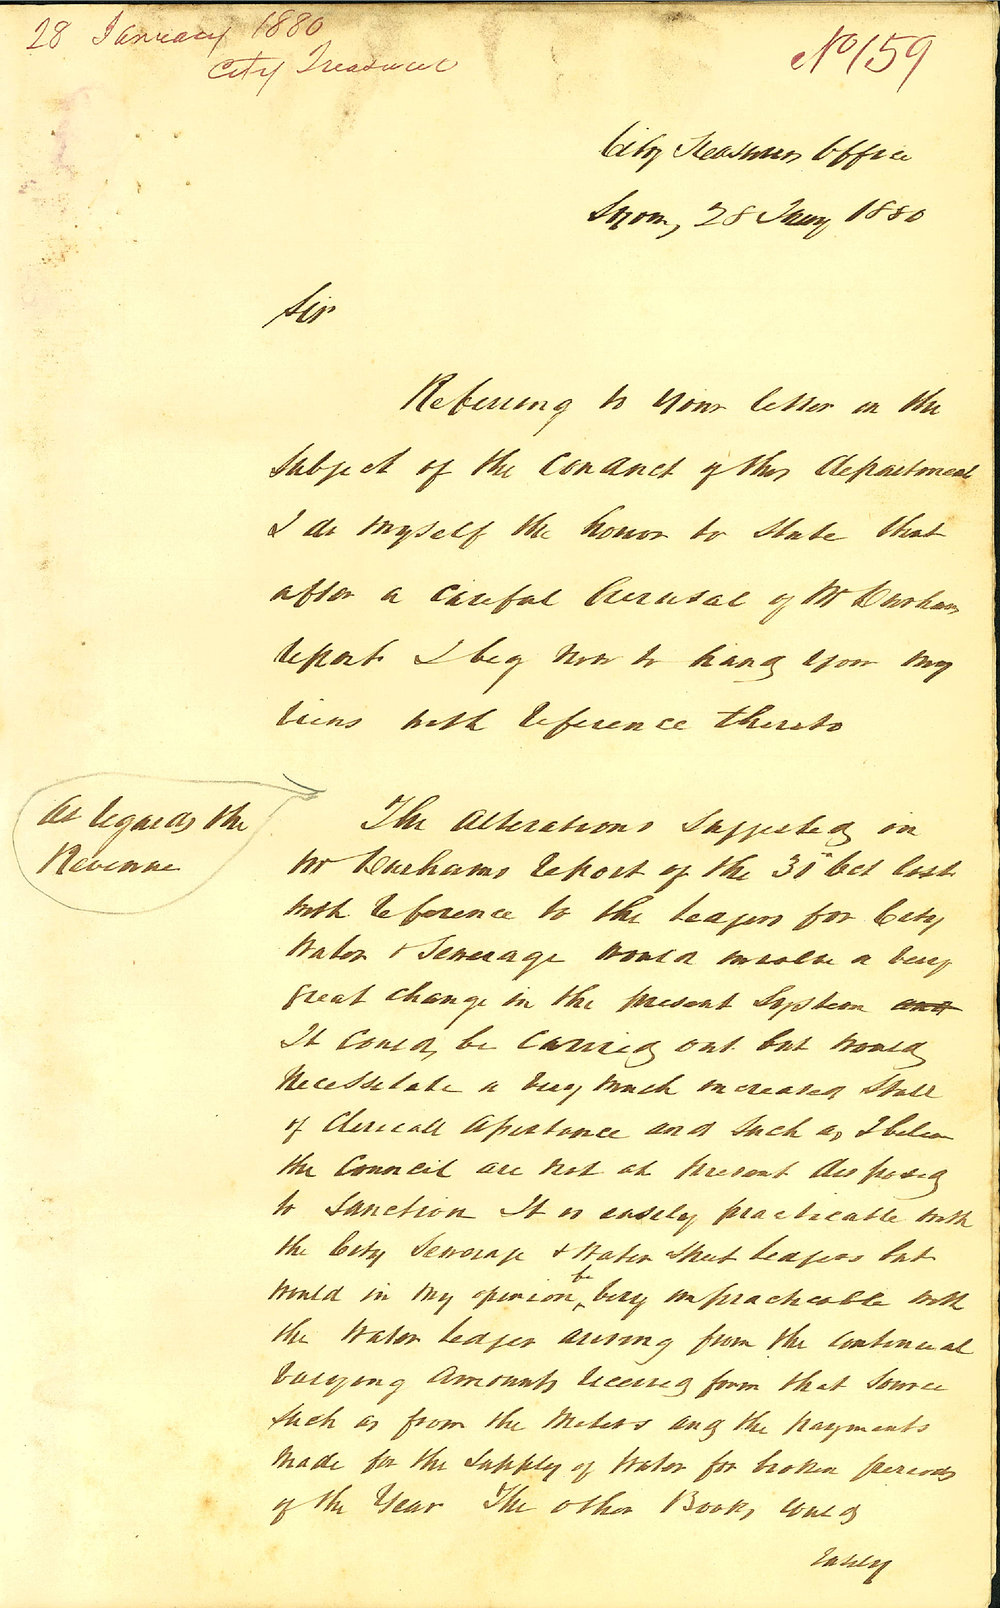 28 January 1880
City Treasurer
No 159
City Treasurers Office
Sydney, 28 Jany 1880
Sir
Referring to your letter on the
subject of the Conduct of this department
I do myself the honor to state that
after a careful perusal of Mr Durhams
report I beg now to hand you my
views with reference thereto
As regards the
Revenue
The Alterations suggested in
Mr Durhams report of the 31st Oct last
with reference to the Ledgers for City
Water & Sewerage would involve a very
great change in the present System and
It could, be Carried out but would
necessitate a very much increased Staff
of Clericall Assistance and such as I believe
the Council are not at present disposed
to Sanction It is easily practicable with
the City Sewerage & Water Street Ledgers but
would in my opinion be very impracticable with
the Water Ledger arising from the continual
varying Amounts received from that Source
such as from the Meters and the payments
made for the supply of Water for broken periods
of the Year The other Books could
easily